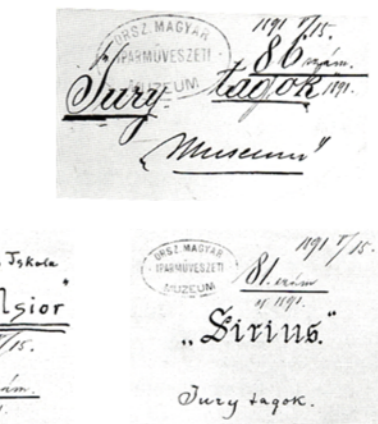 ORSZ. MAGYAR
IPARMŰVESZETI
MUZEUM
1891 V/15.
86 szám.
1891.
Jury tagok
„Museum"
Iskola
lsior"
/15.
szám.
ORSZ. MAGYAR
IPARMŰVESZETI
MUZEUM
1891 V/15.
81. szám
1891.
„Sirius."
Jury tagok.